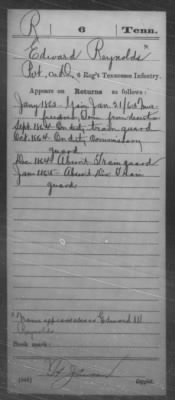 R 6 Tenn.
Edward Reynolds*
Pvt, Co. D, 6 Reg't Tennessee Infantry.
Appears on Returns as follows:
Jany 1863. Gain Jan. 21/63
from desertion
Sept. 1864. On det. train guard
Oct. 1864. On det. Commissary
guard
Dec 1864. Absent Train guard
Jan 1865. Absent Train
guard
*Name appears also as Edward M
Reynolds
Book mark:
Copyist.